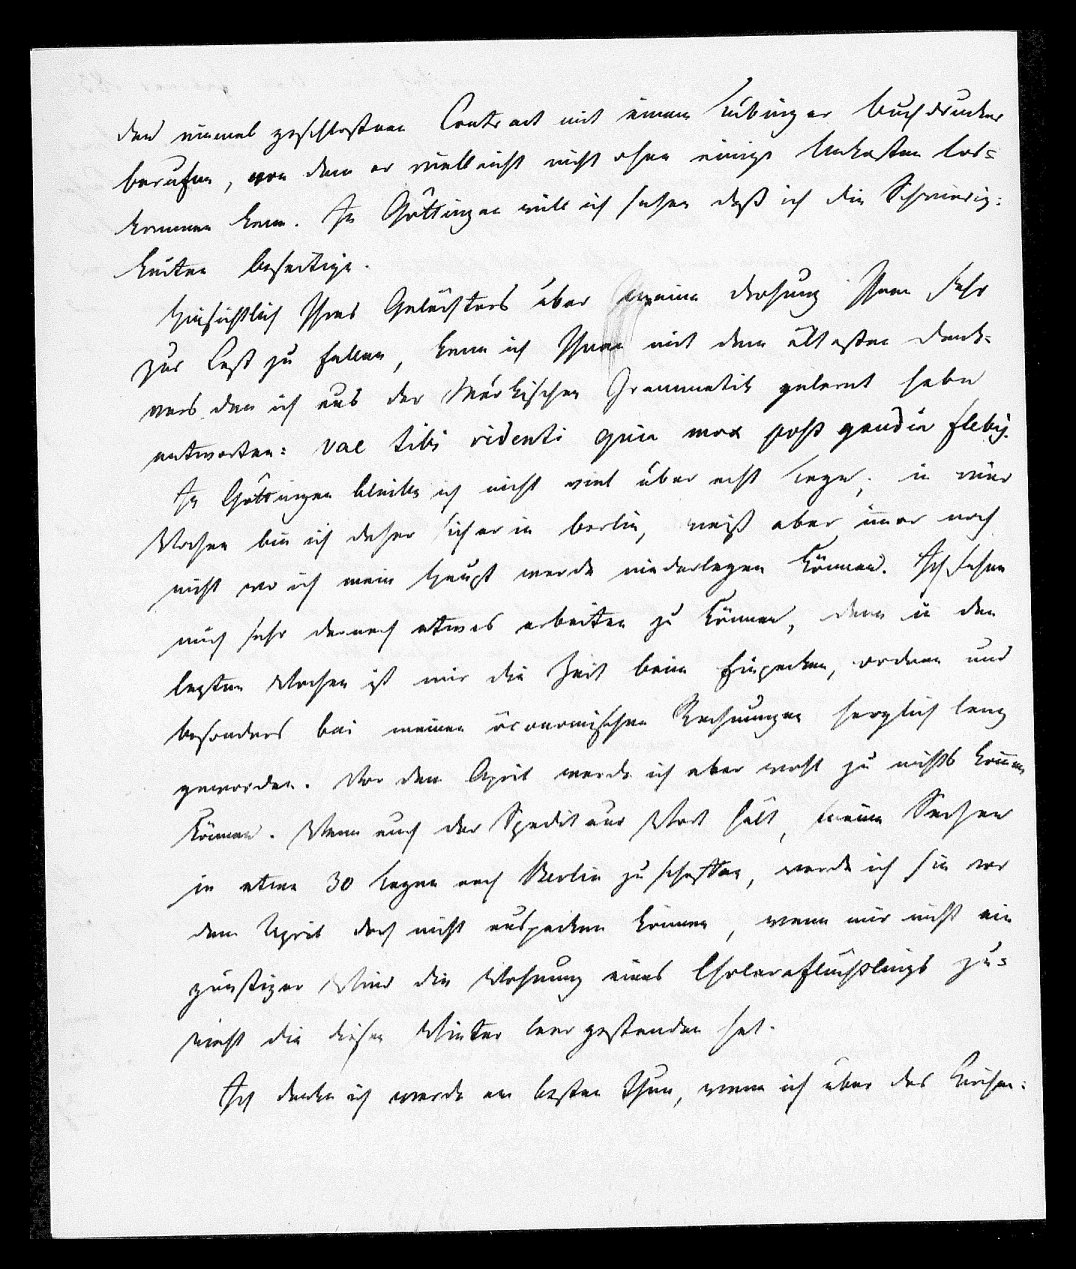 den einmal geschlossenen Contract mit einem Tübinger Buchdrucker
berufen, von dem er vielleicht nicht ohne einige Unkosten los=
kommen kann. In Göttingen will ich sehen daß ich die Schwierig=
keiten beseitige.
Hinsichtlich Ihres Gelächters über meine Drohung Ihnen sehr
zur Last zu fallen, kann ich Ihnen mit dem ältesten Denk=
vers den ich aus der Märkischen Grammatik gelernt habe
antworten: vae tibi ridenti quia mox post gaudia flebis.
In Göttingen bleibe ich nicht viel über acht Tage; in vier
Wochen bin ich daher sicher in Berlin, weiß aber immer noch
nicht wo ich mein Haupt werde niederlegen können. Ich sehne
mich sehr darnach etwas arbeiten zu können, denn in den
letzten Wochen ist mir die Zeit beim Einpacken, ordnen und
besonders bei meinen öconomischen Rechnungen herzlich lang
geworden. Vor dem April werde ich aber wohl zu nichts kommen
können. Wenn auch der Spediteur Wort hält, meine Sachen
in etwa 30 Tagen nach Berlin zu schaffen, werde ich sie vor
dem April doch nicht auspacken können, wenn mir nicht ein
günstiger Wind die Wohnung eines Choleraflüchtlings zu=
weht die diesen Winter leer gestanden hat.
Ich denke ich werde am besten thun, wenn ich über das Kirchen=